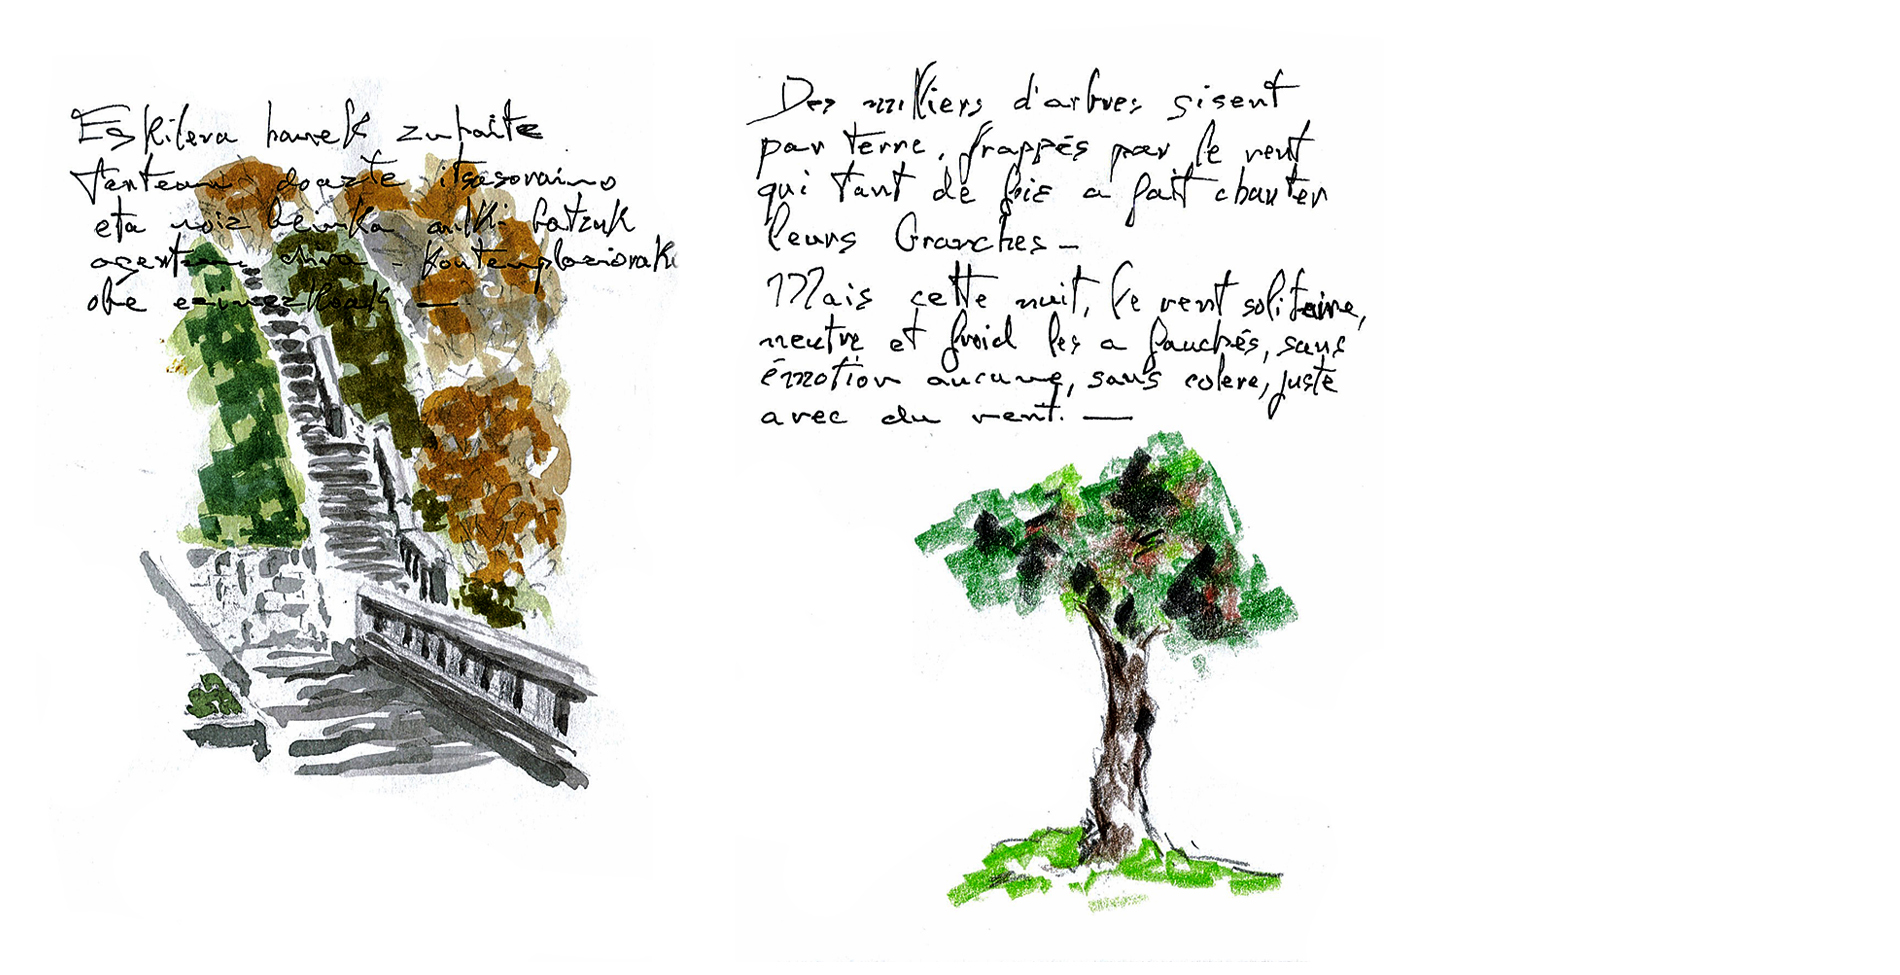 Eskilera hauek zuhaitz
tartean doazte itsasoraino
eta noiz behinka aulki batzuk
agertzen dira - kontemplaziorako
obe ezinezkoak —
Des milliers d'arbres gisent
par terre, frappés par le vent
qui tant de fois a fait chanter
leurs branches —
Mais cette nuit, le vent solitaire,
neutre et froid les a fauchés, sans
émotion aucune, sans colere, juste
avec du vent. —